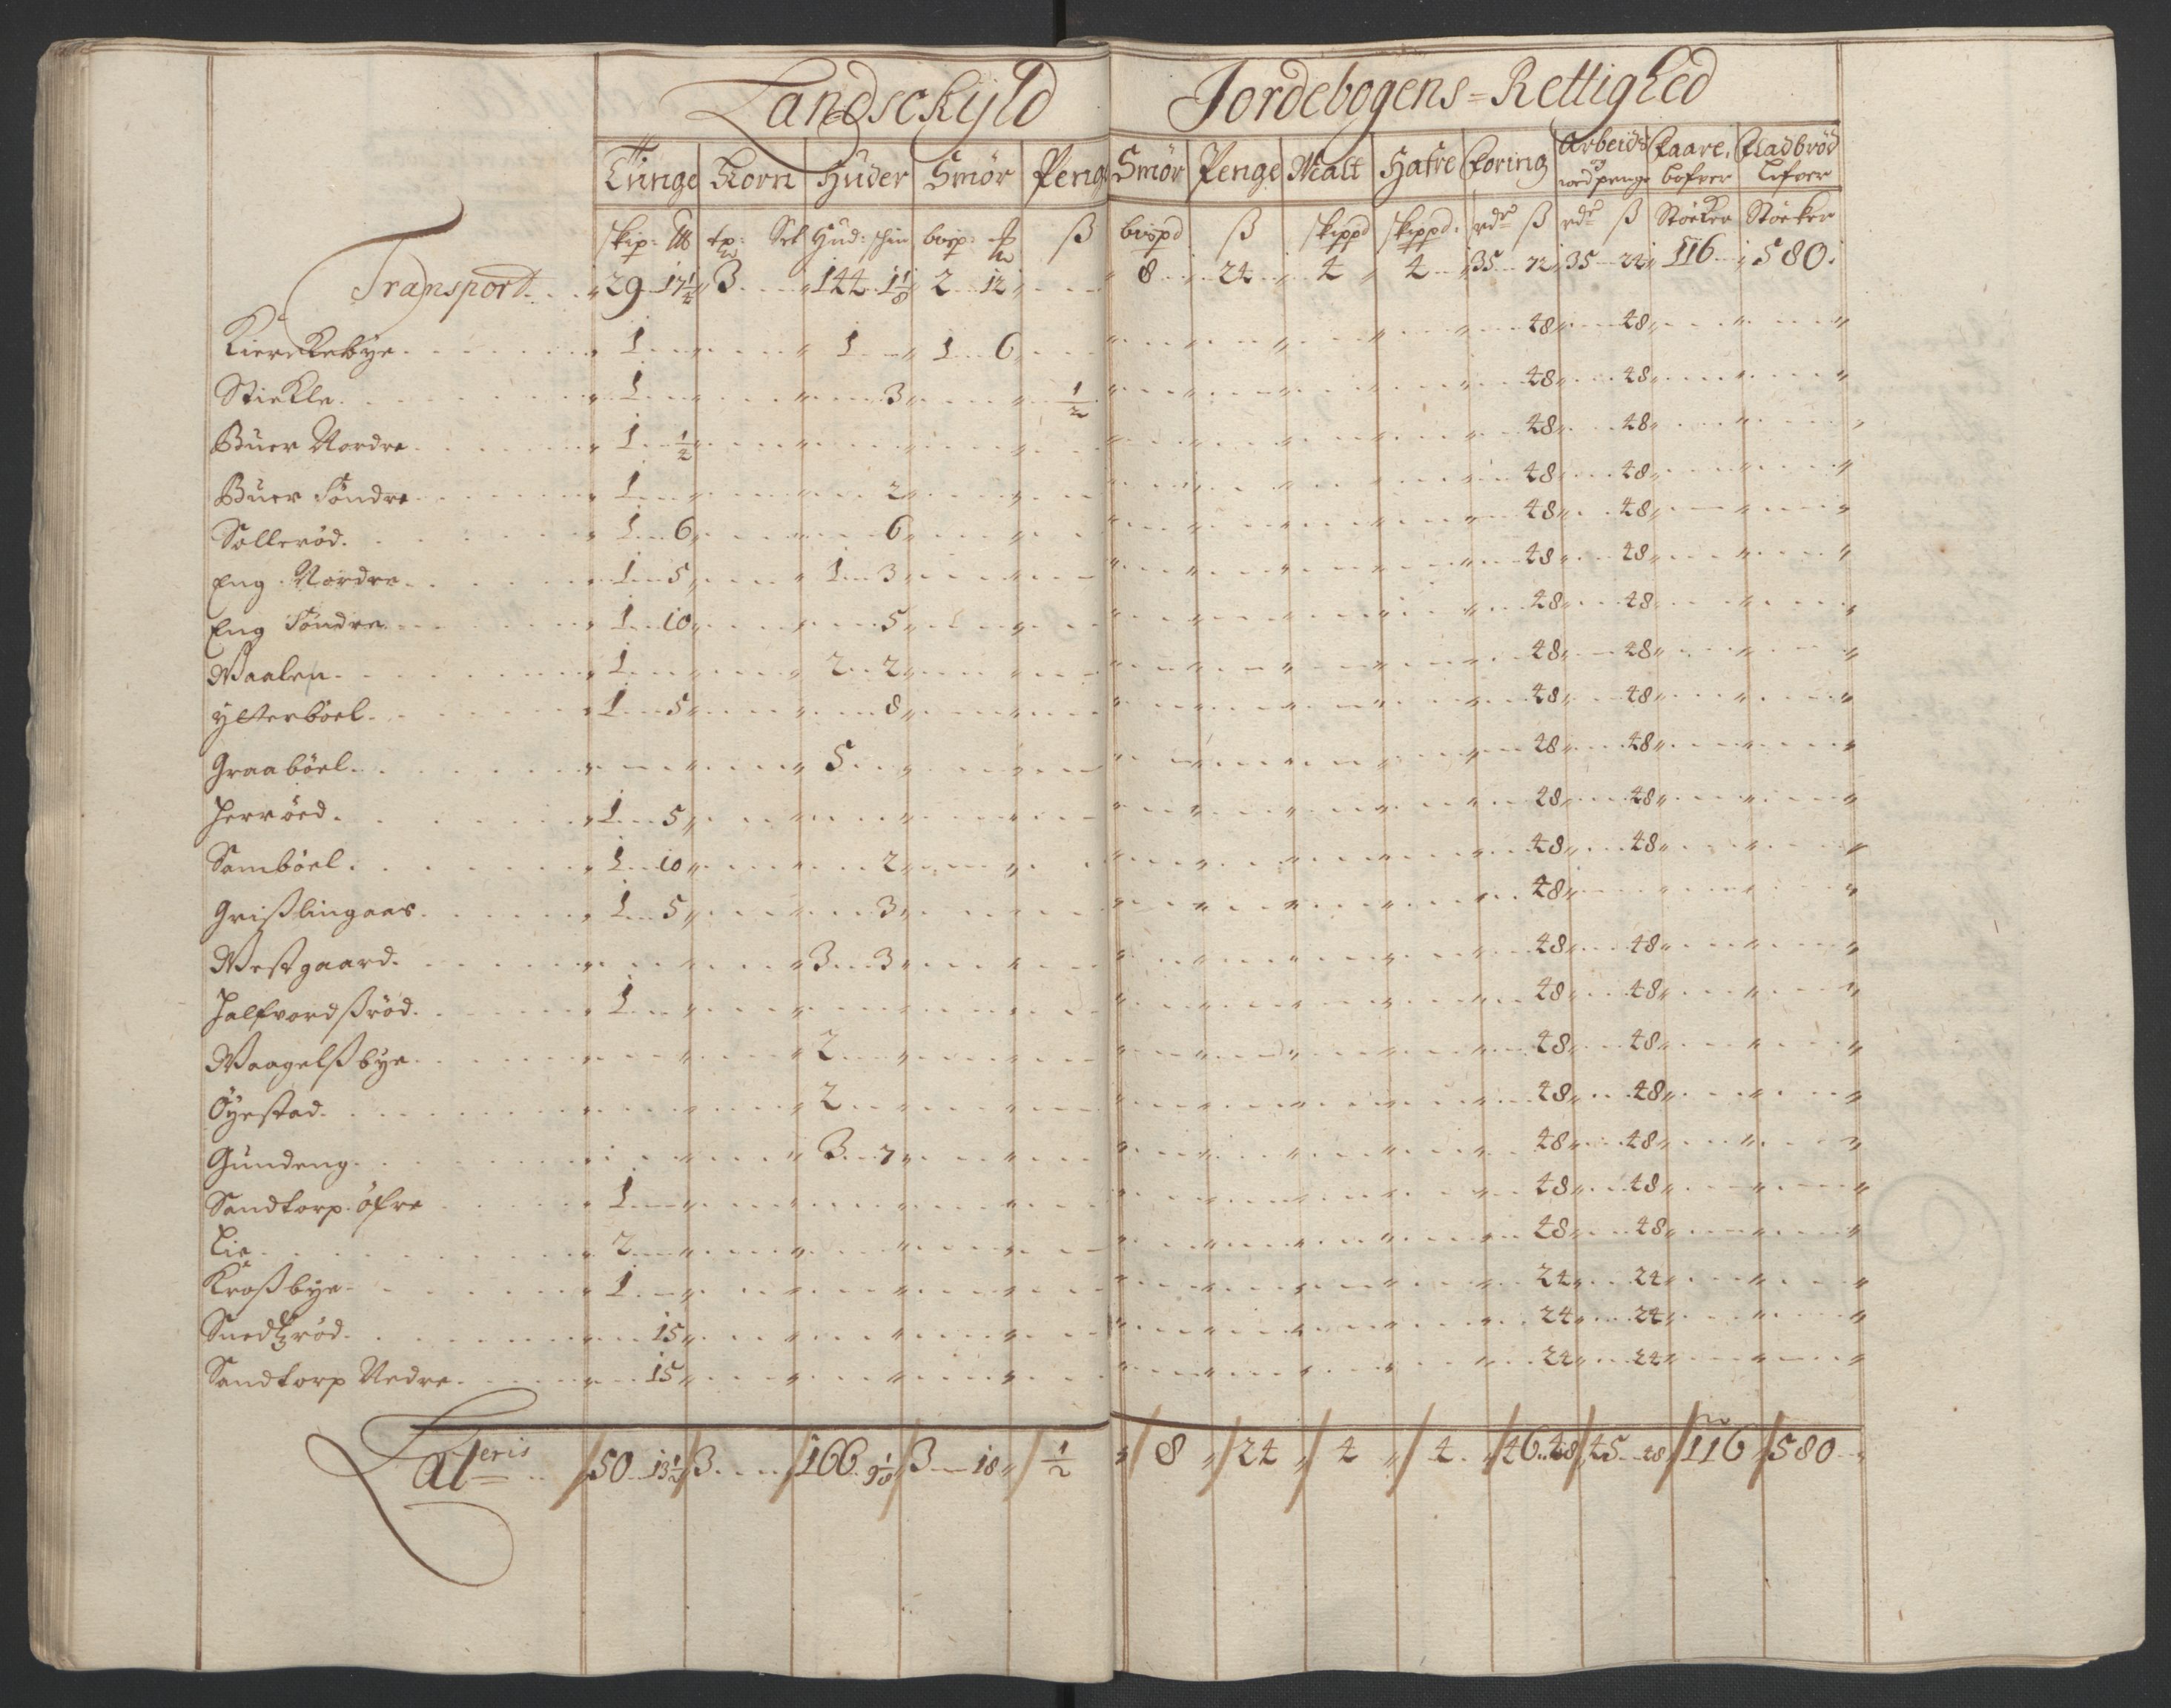 Landschyld Jordebogens=Rettighed
Tunge Korn Huder Smör Penge Smör Penge Malt Hafre Foring Arbeids Faare Fladbrød
wed penge bofver Lefver
skip: tp: Set Hud: skin bvsp: ß bvspd ß skippd skippd. rdr ß rdr ß Støcker Støcker
Transport 29 17½ 3 144 1⅛ 2 12 8 24 4 4 35 72 35 24 116 580
Kierckebye 1 1 1 6 48 48
Stickle 1 3 ½ 48 48
Buer Nordre 1 ½ 48 48
Buer Söndre 1 2 48 48
Sollerød 1 6 6 48 48
Eng Nordre 1 5 1 3 48 48
Eng Söndre 1 10 5 48 48
Waalen 1 2 2 48 48
Ylterböel 1 5 8 48 48
Graaböel 5 48 48
Herröed 1 5 48 48
Samböel 1 10 2 48 48
Grißlingaas 1 5 3 48
Westgaard 3 3 48 48
Halfvordßröd 1 48 48
Waagelßbye 2 48 48
Öyestad 2 48 48
Gundeng 3 7 48 48
Sandtorp öfre 1 48 48
Lie 2 48 48
Kroßbye 1 24 24
Snedtzröd 15 24 24
Sandtorp Nedre 15 24 24
Lateris 50 13½ 3 166 9⅛ 3 18 ½ 8 24 4 4 46 48 45 48 116 580